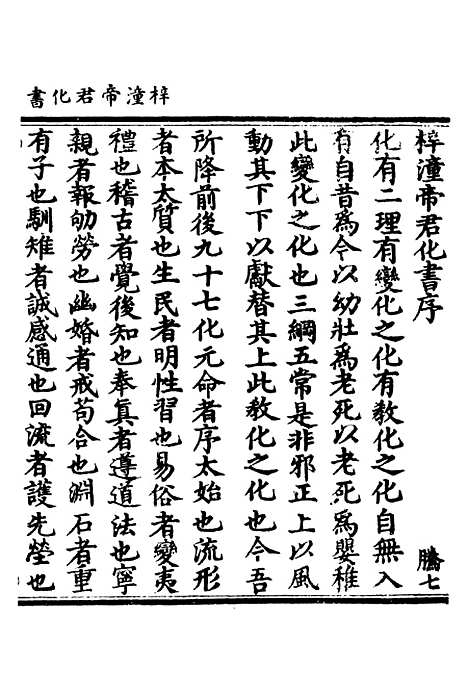 梓潼帝君化書
梓潼帝君化書序
騰七
化有二理有變化之化有教化之化自無入
有自昔為今以幼壯為老死以老死為嬰稚
此變化之化也三綱五常是非邪正上以風
動其下下以獻替其上此教化之化也今吾
所降前後九十七化元命者序太始也流形
者本太質也生民者明性習也易俗者變夷
禮也稽古者覺後知也奉真者遵道法也寧
親者報劬勞也幽婚者戒苟合也淵石者重
有子也馴雉者誠感通也回流者護先塋也